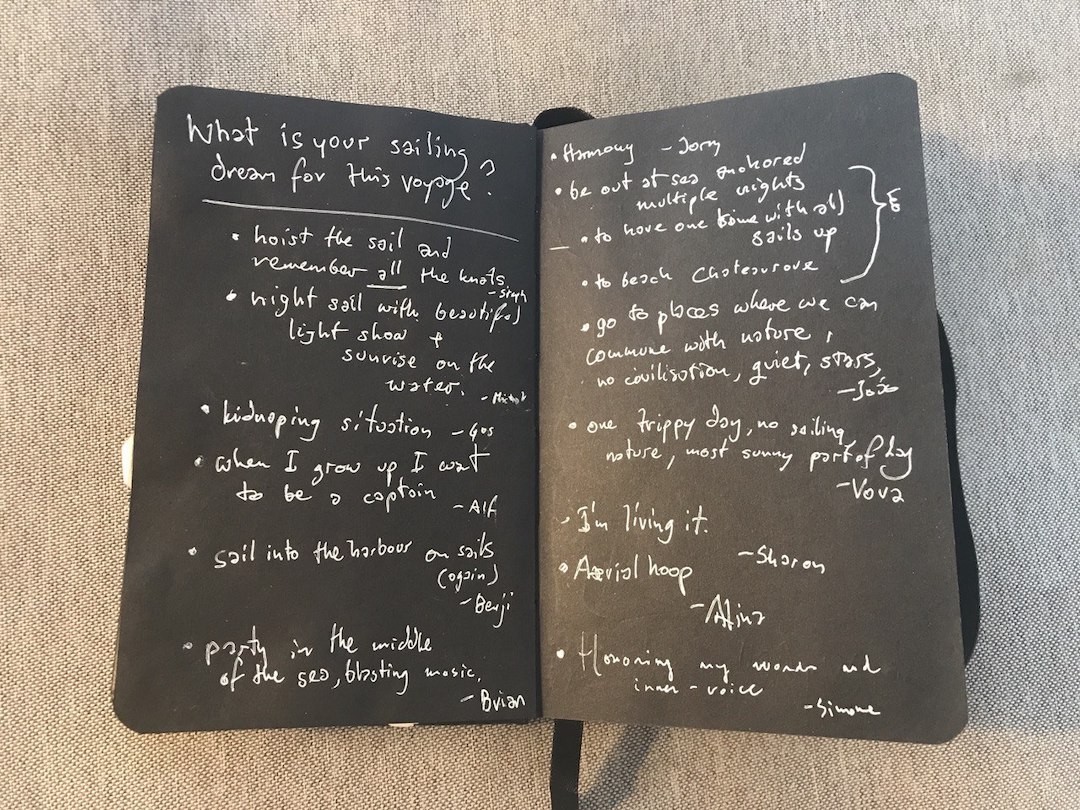 What is your sailing
dream for this voyage?
• hoist the sail and
remember all the knots
- Steph
• night sail with beautiful
light show +
sunrise on the
water.
• kidnaping situation - Gos
• when I grow up I want
to be a captain
- Alf
• sail into the harbour on sails
(again)
- Benji
• party in the middle
of the sea, blasting music.
- Brian
• Harmony - Jorn
• be out at sea anchored
multiple nights
- • to have one time with all
sails up
• to beach
• go to places where we can
commune with nature,
no civilisation, quiet, stars,
- João
• one trippy day, no sailing,
nature, most sunny part of day
- Vova
- I'm living it.
- Sharon
• Aerial hoop
- Afina
• Honoring my womb and
inner-voice
- Simone